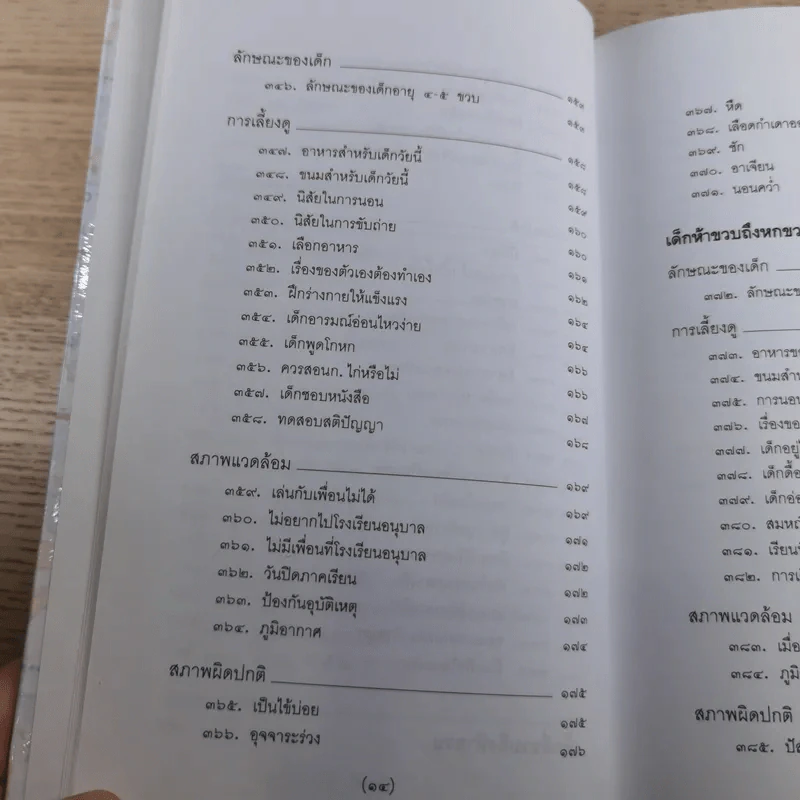 ลักษณะของเด็ก
๓๔๖. ลักษณะของเด็กอายุ ๔-๕ ขวบ
การเลี้ยงดู ๑๕๘
๓๔๗. อาหารสำหรับเด็กวัยนี้ ๑๕๘
๓๔๘. ขนมสำหรับเด็กวัยนี้ ๑๕๙
๓๔๙. นิสัยในการนอน ๑๖๐
๓๕๐. นิสัยในการขับถ่าย ๑๖๐
๓๕๑. เลือกอาหาร ๑๖๑
๓๕๒. เรื่องของตัวเองต้องทำเอง ๑๖๒
๓๕๓. ฝึกร่างกายให้แข็งแรง ๑๖๔
๓๕๔. เด็กอารมณ์อ่อนไหวง่าย ๑๖๔
๓๕๕. เด็กพูดโกหก ๑๖๖
๓๕๖. ควรสอนก. ไก่หรือไม่ ๑๖๖
๓๕๗. เด็กชอบหนังสือ ๑๖๗
๓๕๘. ทดสอบสติปัญญา ๑๖๘
สภาพแวดล้อม ๑๖๙
๓๕๙. เล่นกับเพื่อนไม่ได้ ๑๖๙
๓๖๐. ไม่อยากไปโรงเรียนอนุบาล ๑๗๑
๓๖๑. ไม่มีเพื่อนที่โรงเรียนอนุบาล ๑๗๒
๓๖๒. วันปิดภาคเรียน ๑๗๒
๓๖๓. ป้องกันอุบัติเหตุ ๑๗๓
๓๖๔. ภูมิอากาศ ๑๗๔
สภาพผิดปกติ ๑๗๕
๓๖๕. เป็นไข้บ่อย ๑๗๕
๓๖๖. อุจจาระร่วง ๑๗๖
(๑๔)
๓๖๗. หืด
๓๖๘. เลือดกำเดาออ
๓๖๙. ชัก
๓๗๐. อาเจียน
๓๗๑. นอนคว่ำ
เด็กห้าขวบถึงหกขว
ลักษณะของเด็ก
๓๗๒. ลักษณะข
การเลี้ยงดู
๓๗๓. อาหารขอ
๓๗๔. ขนมสำห
๓๗๕. การนอน
๓๗๖. เรื่องของ
๓๗๗. เด็กอยู่
๓๗๘. เด็กดื้อ
๓๗๙. เด็กอ่อ
๓๘๐. สมหญ
๓๘๑. เรียน
๓๘๒. การเ
สภาพแวดล้อม
๓๘๓. เมื่อ
๓๘๔. ภูมิ
สภาพผิดปกติ
๓๘๕. ป้อ